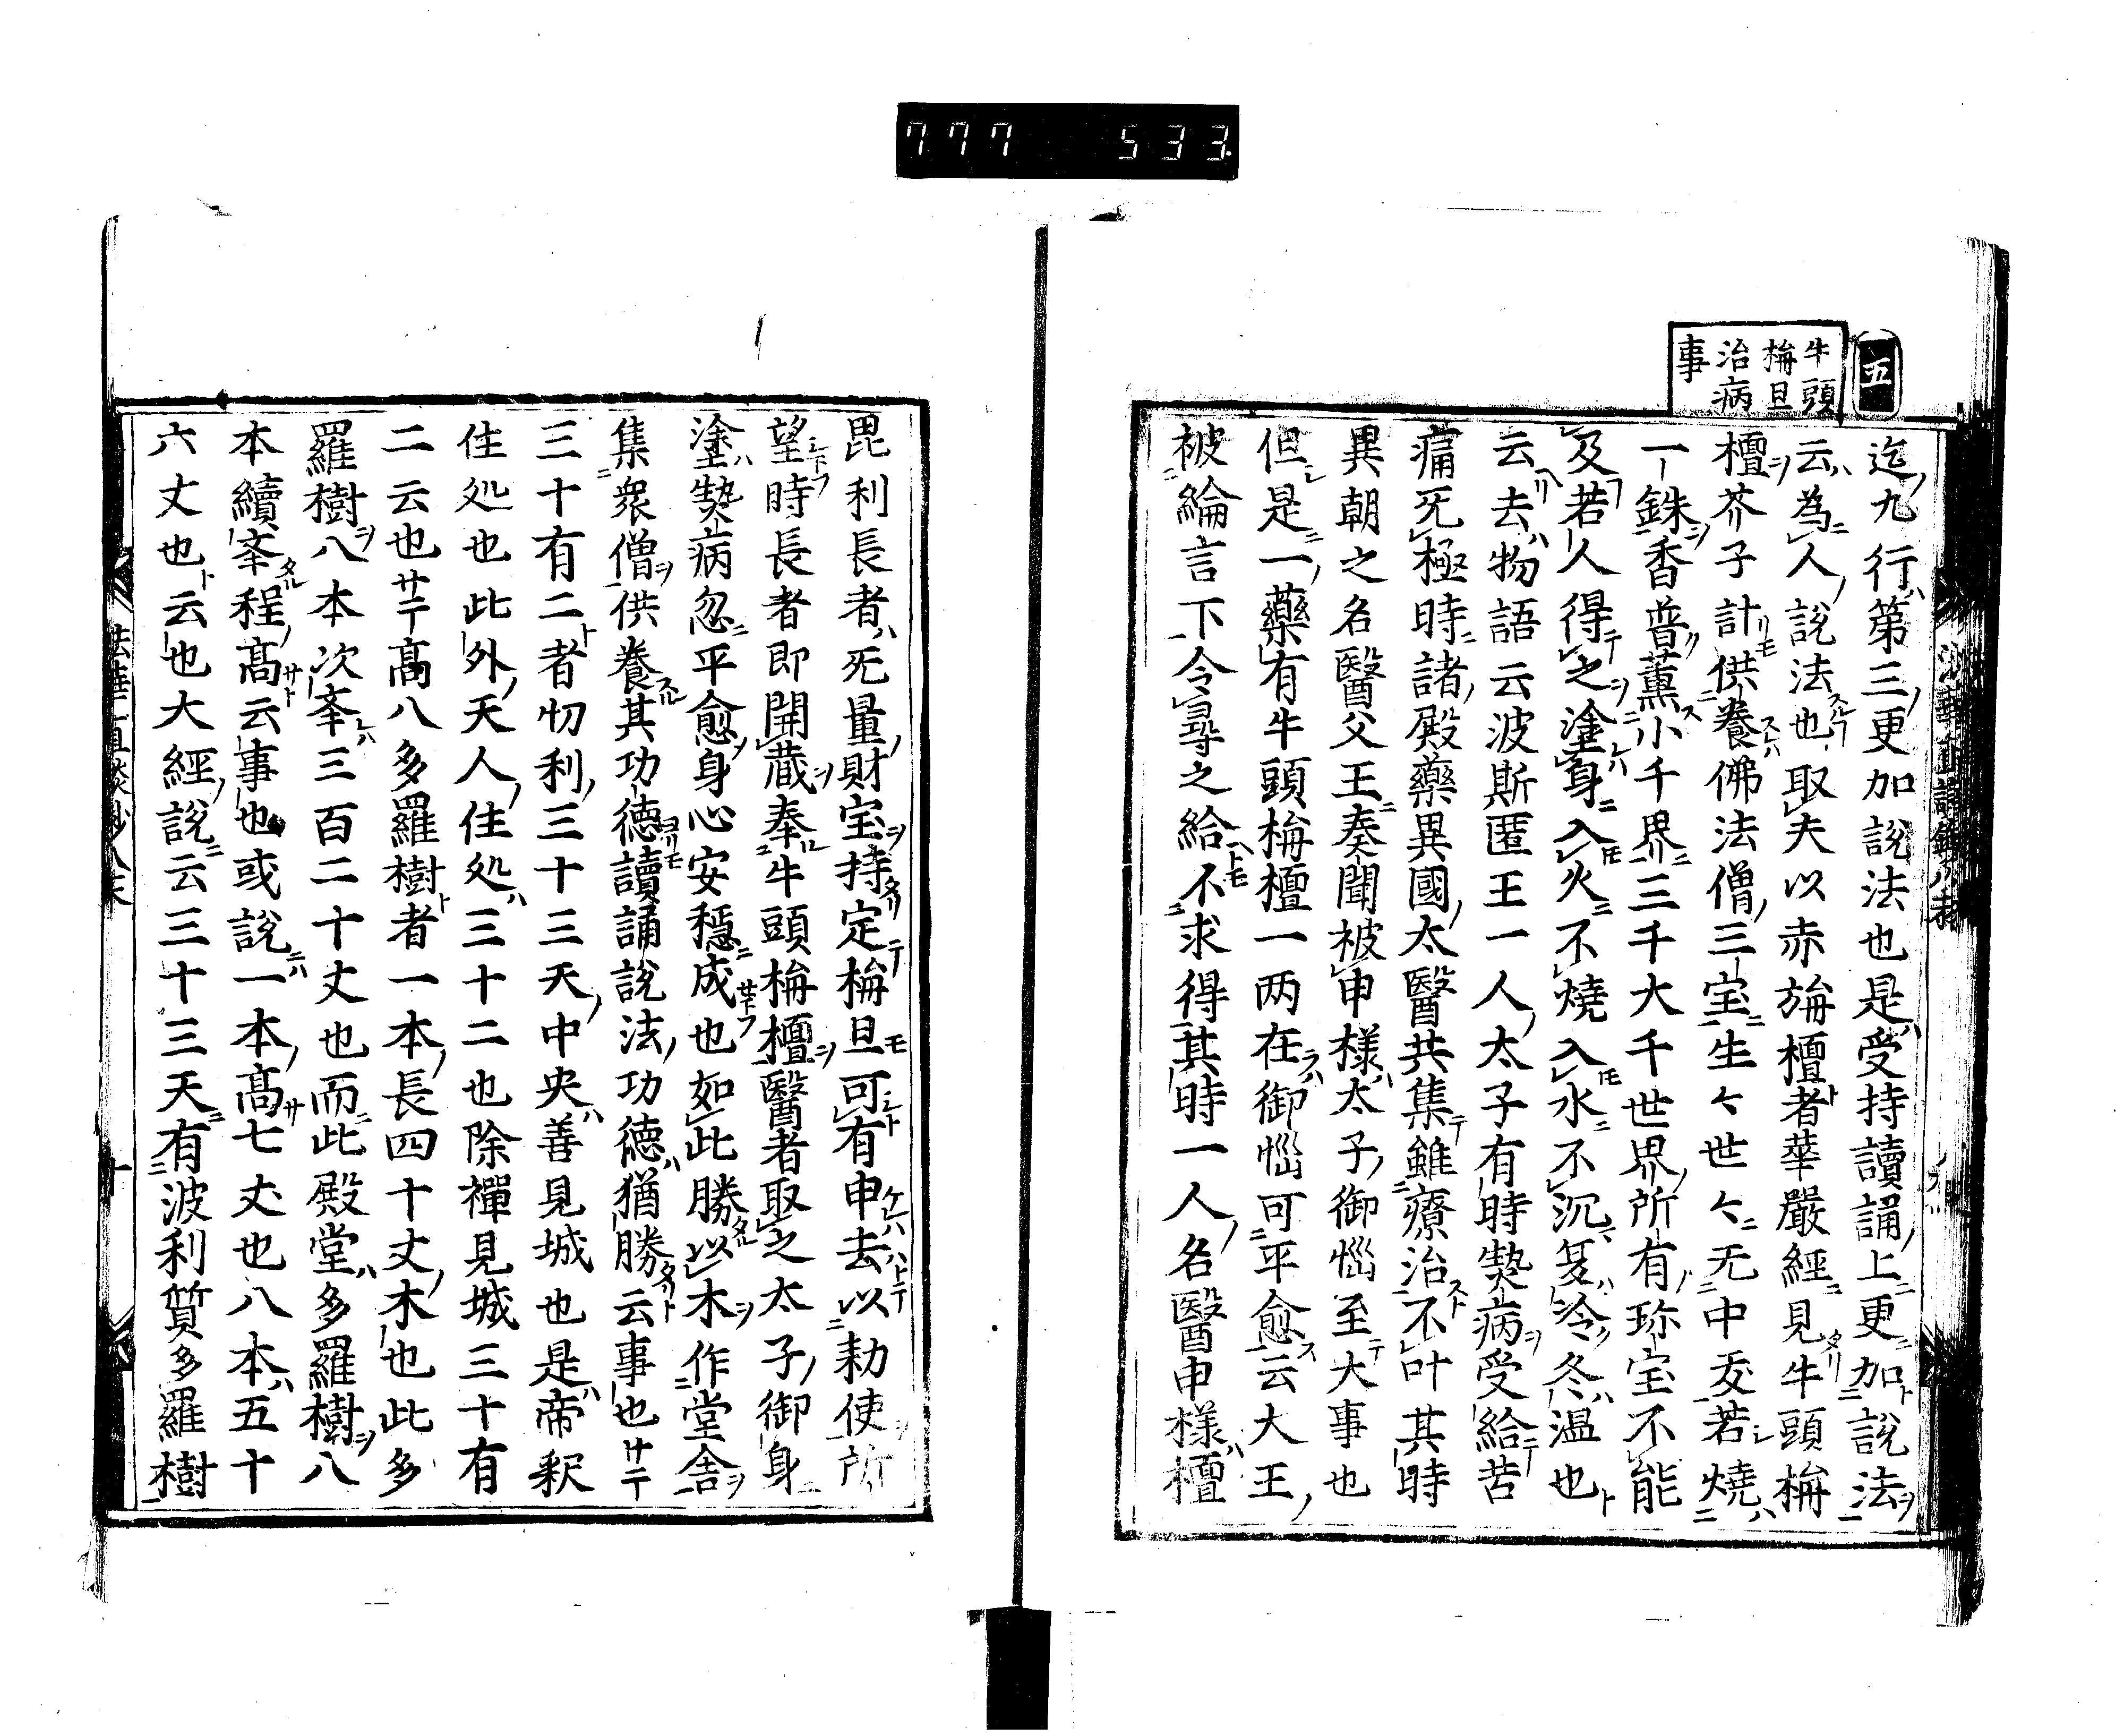 777 533
五
牛頭
栴旦
治病
事
迄九行第三更加說法也是受持讀誦上更加說法
云為人說法也取夫以赤旃檀者華嚴經見牛頭栴
檀芥子計供養佛法僧三宝生々世々无中夭若燒
一銖香普薰小千界三千大千世界所有珎宝不能
及若人得之塗身入火不燒入水不沉夏冷冬温也
云去物語云波斯匿王一人太子有時㔟病受給苦
痛死極時諸殿藥異國太醫共集雖療治不叶其時
異朝之名醫父王奏聞被申樣太子御惱至大事也
但是一藥有牛頭栴檀一两在御惱可平愈云大王
被綸言下令尋之給不求得其時一人名醫申樣檀
毘利長者死量財宝持定栴旦可有申去以勅使所
望時長者即開蔵奉牛頭栴檀醫者取之太子御身
塗㔟病忽平愈身心安穏成也如此勝以木作堂舎
集衆僧供養其功德讀誦說法功德猶勝云事也
三十有二者忉利三十三天中央善見城也是帝釈
住処也此外天人住処三十二也除禪見城三十有
二云也高八多羅樹者一本長四十丈木也此多
羅樹八本次夆三百二十丈也而此殿堂多羅樹八
本續夆程髙云事也或說一本髙七丈也八本五十
六丈也云也大經說云三十三天有波利質多羅樹
法華直談鈔八末
十